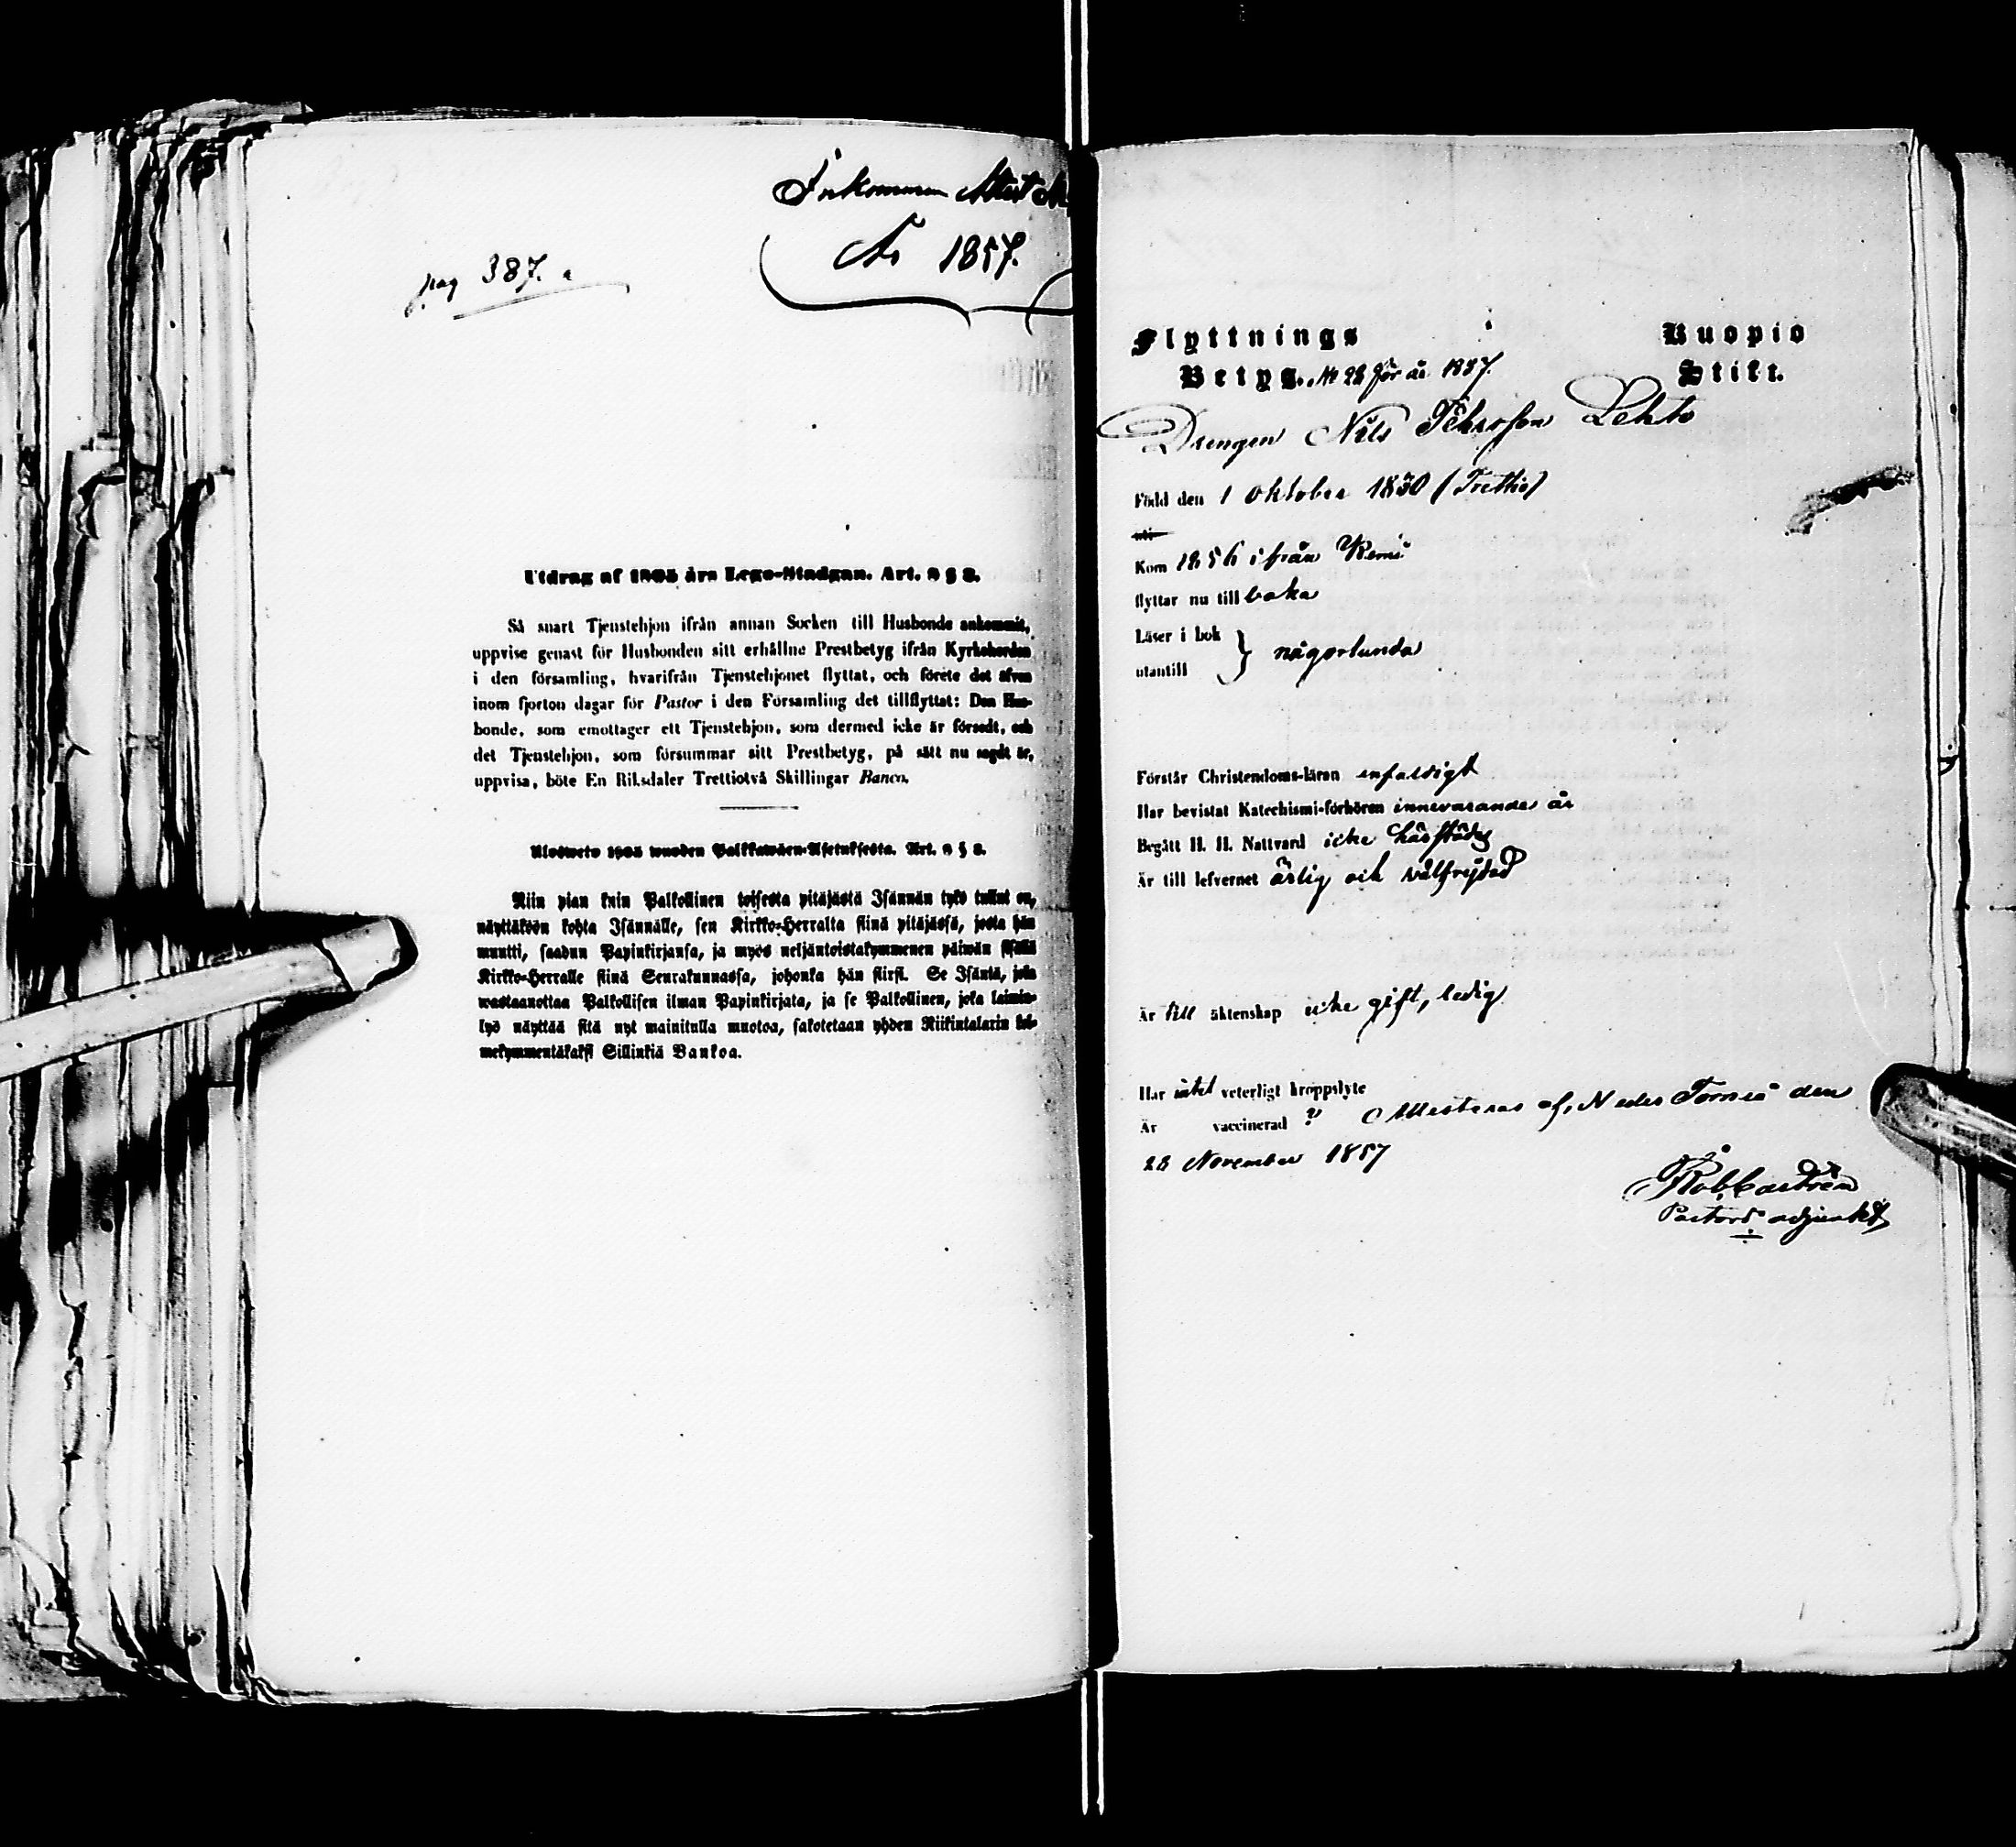 Inkomne Attest
År 1857.
pag 387. a
Utdrag af 1805 års Lego-Stadgan. Art. 2 § 2.
Så snart Tjenstehjon ifrån annan Socken till Husbonde ankommit,
uppvise genast för Husbonden sitt erhållne Prestbetyg ifrån Kyrkoherden
i den församling, hvarifrån Tjenstehjonet flyttat, och förete det äfven
inom fjorton dagar för Pastor i den Församling det tillflyttat: Den Hus-
bonde, som emottager ett Tjenstehjon, som dermed icke är försedt, och
det Tjenstehjon, som försummar sitt Prestbetyg, på sätt nu sagdt är,
uppvisa, böte En Riksdaler Trettiotvå Skillingar Banco.
Ulosweto 1805 wuoden Palkkawäen-Asetuksesta. Art. 2 § 2.
Niin pian kuin Palkollinen toisesta pitäjästä Isännän tykö tullut on,
näyttäköön kohta Isännälle, sen Kirkko-Herralta siinä pitäjässä, josta hän
muutti, saadun Papinkirjansa, ja myös neljäntoistakymmenen päiwän sisällä
Kirkko-Herralle siinä Seurakunnassa, johonka hän siirsi. Se Isäntä, joka
wastaanottaa Palkollisen ilman Papinkirjata, ja se Palkollinen, joka laimin-
lyö näyttää sitä nyt mainitulla muotoa, sakotetaan yhden Riikintalarin kol-
mekymmentäkaksi Sillinkiä Bankoa.
Flyttnings
Betyg. N 28 för år 1857.
Kuopio
Stift.
Drengen Nils Pehrsson Lehto
Född den 1 Oktober 1830 (Trettio)
uti
Kom 1856 ifrån Kemi
flyttar nu till baka
Läser i bok
utantill } någorlunda
Förstår Christendoms-läran enfaldigt
Har bevistat Katechismi-förhören innevarande år
Begått H. H. Nattvard icke härstädes
Är till lefvernet ärlig och välfrejdad
Är till äktenskap icke gift, ledig
Har intet veterligt kroppslyte
Är vaccinerad ? Attesteras af Neder Torneå den
28 November 1857
Rob Castrén
Pastors adjunkt